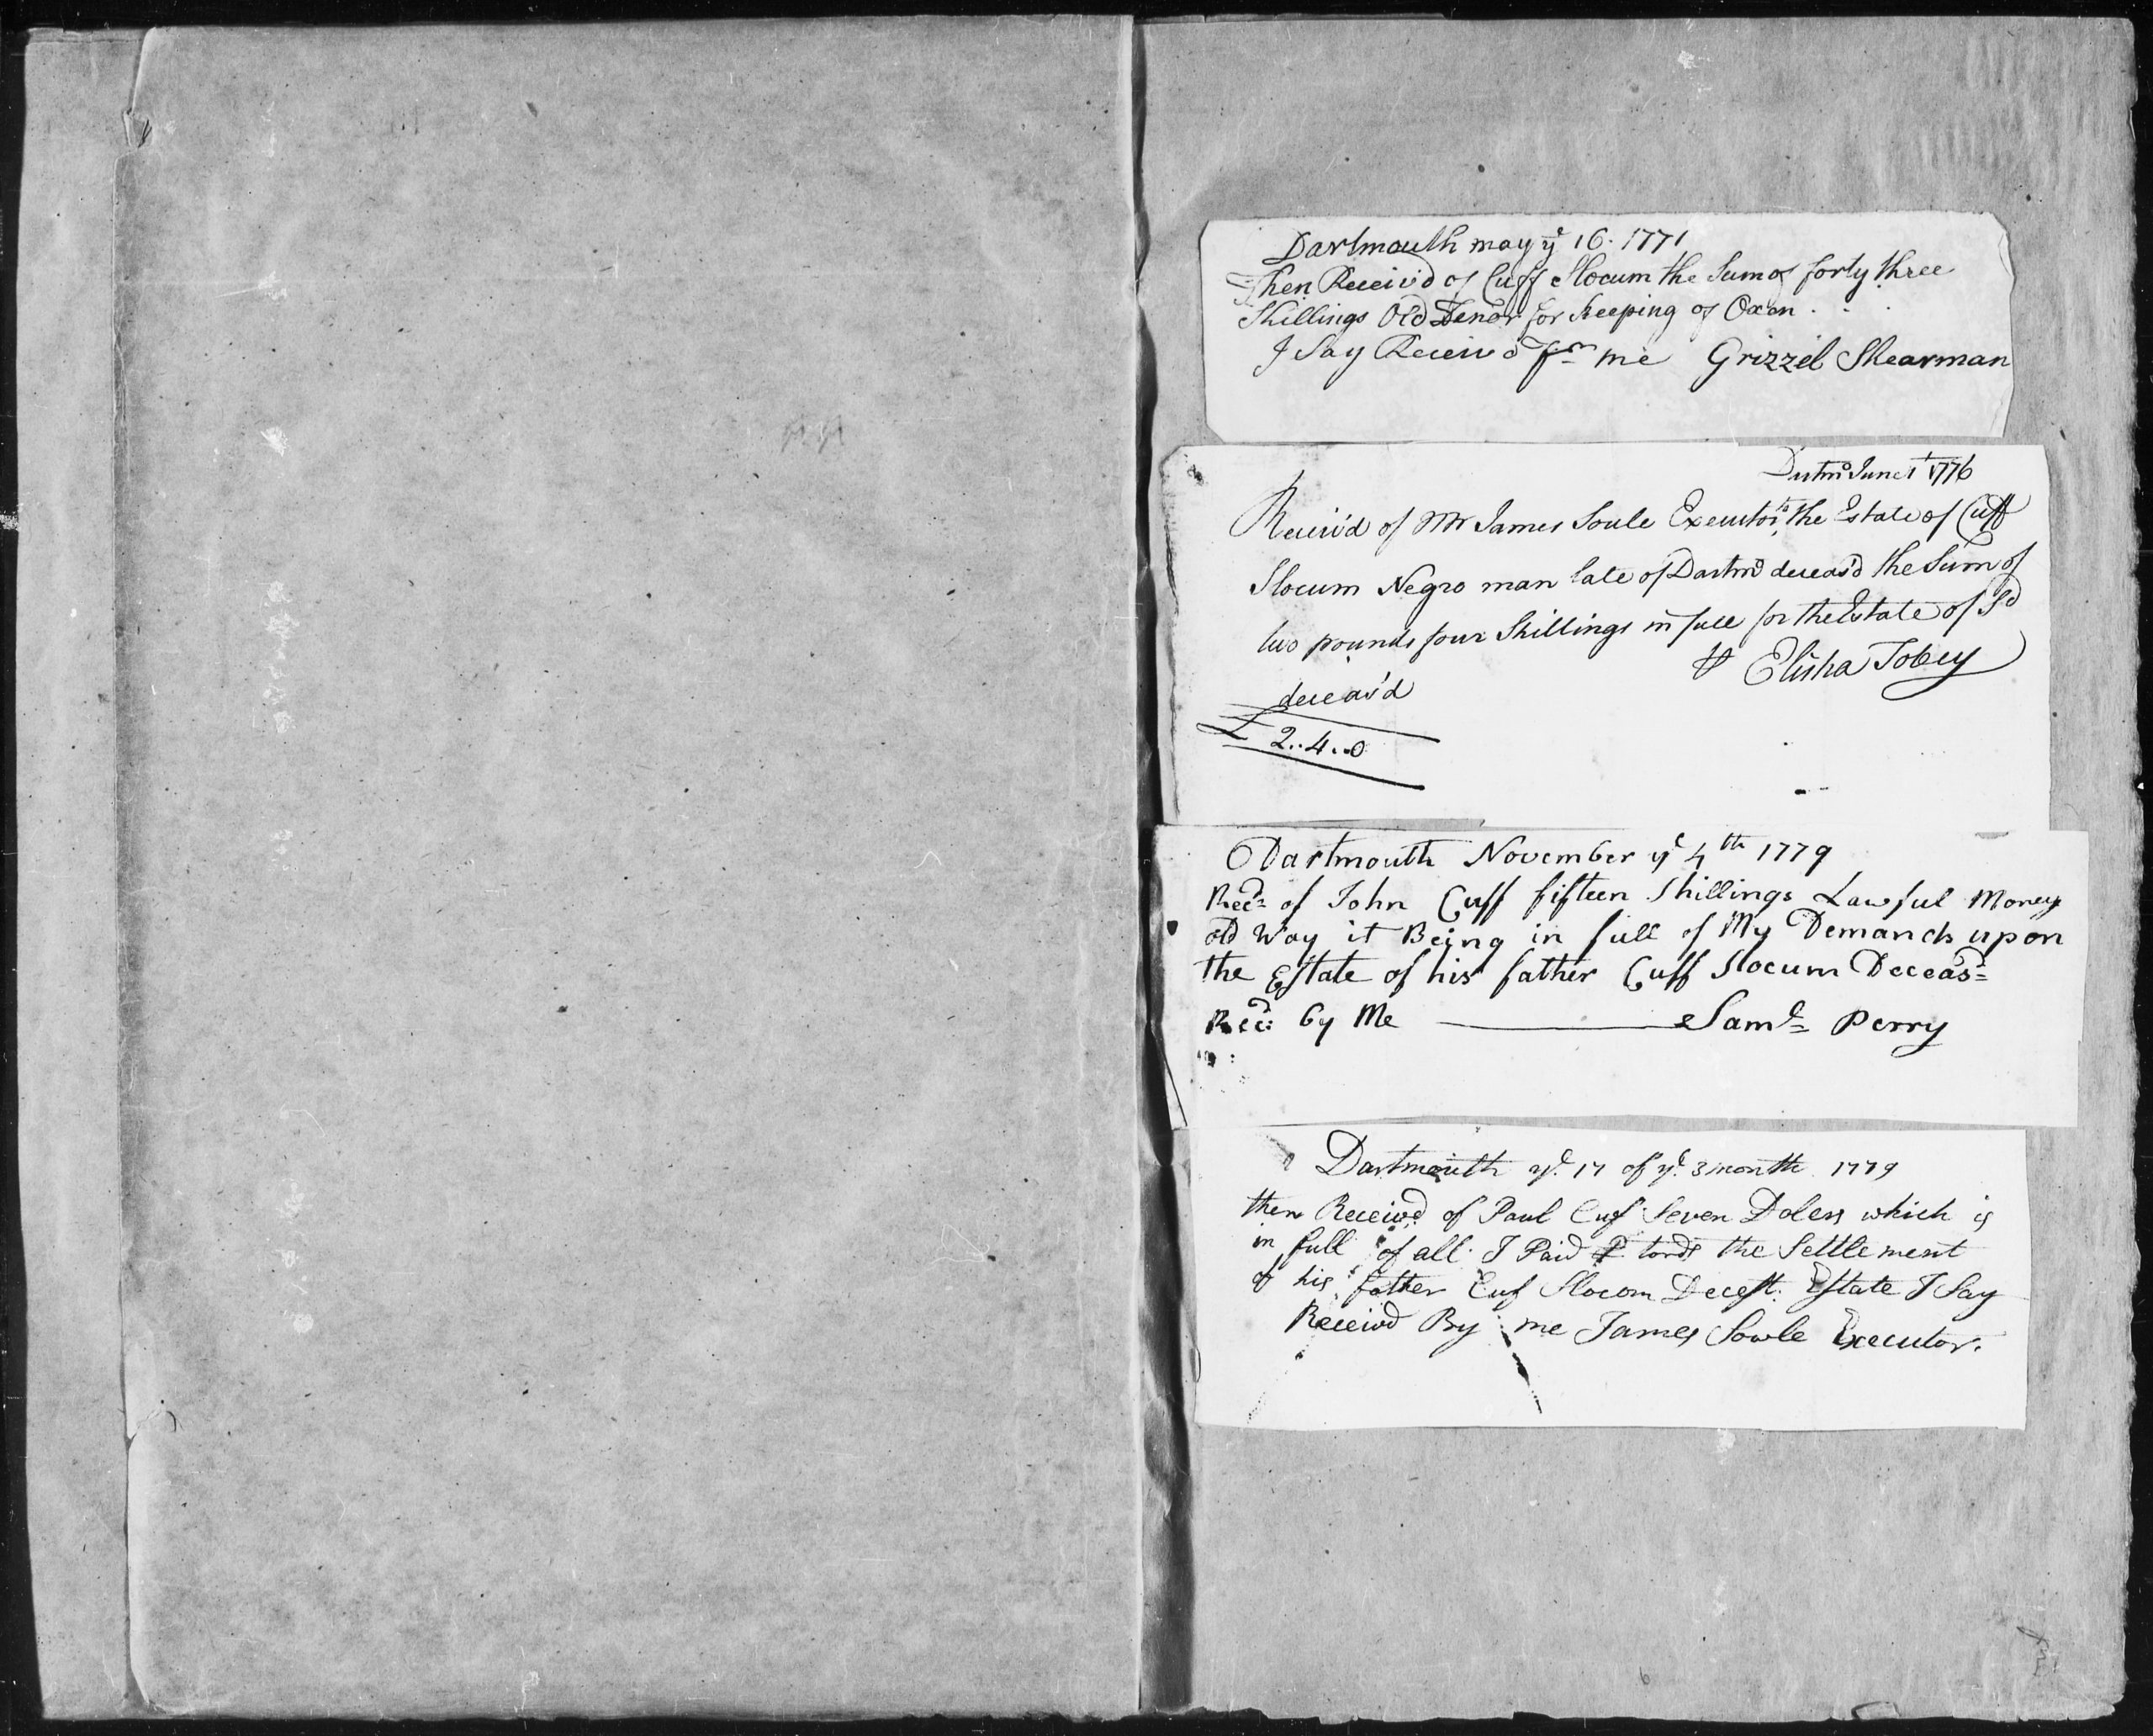 Dartmouth may ye 16. 1771
Then Receiv'd of Cuff Slocum the Sum of forty three
Shillings Old Tenor for keeping of Oxon . . .
I Say Receiv'd pr me Grizzel Shearman
Dartmo June 1 1776
Receiv'd of Mr James Soule Executor to the Estate of Cuff
Slocum Negro man late of Dartmo deceas'd the Sum of
two pounds four Shillings in full for the Estate of Sd
deceas'd
P Elisha Tobey
£ 2..4..0
Dartmouth November ye 4th 1779
Recd of John Cuff fifteen Shillings Lawful Money
old Way it Being in full of My Demands upon
the Estate of his father Cuff Slocum Deceasd
Recd by Me Saml Perry
Dartmouth ye 17 of ye 3 month 1779
then Receivd of Paul Cuf Seven Dolers which is
in full of all I Paid tords the Settlement
of his father Cuf Slocom Decest. Estate I Say
Receivd By me James Sowle Executor.
6